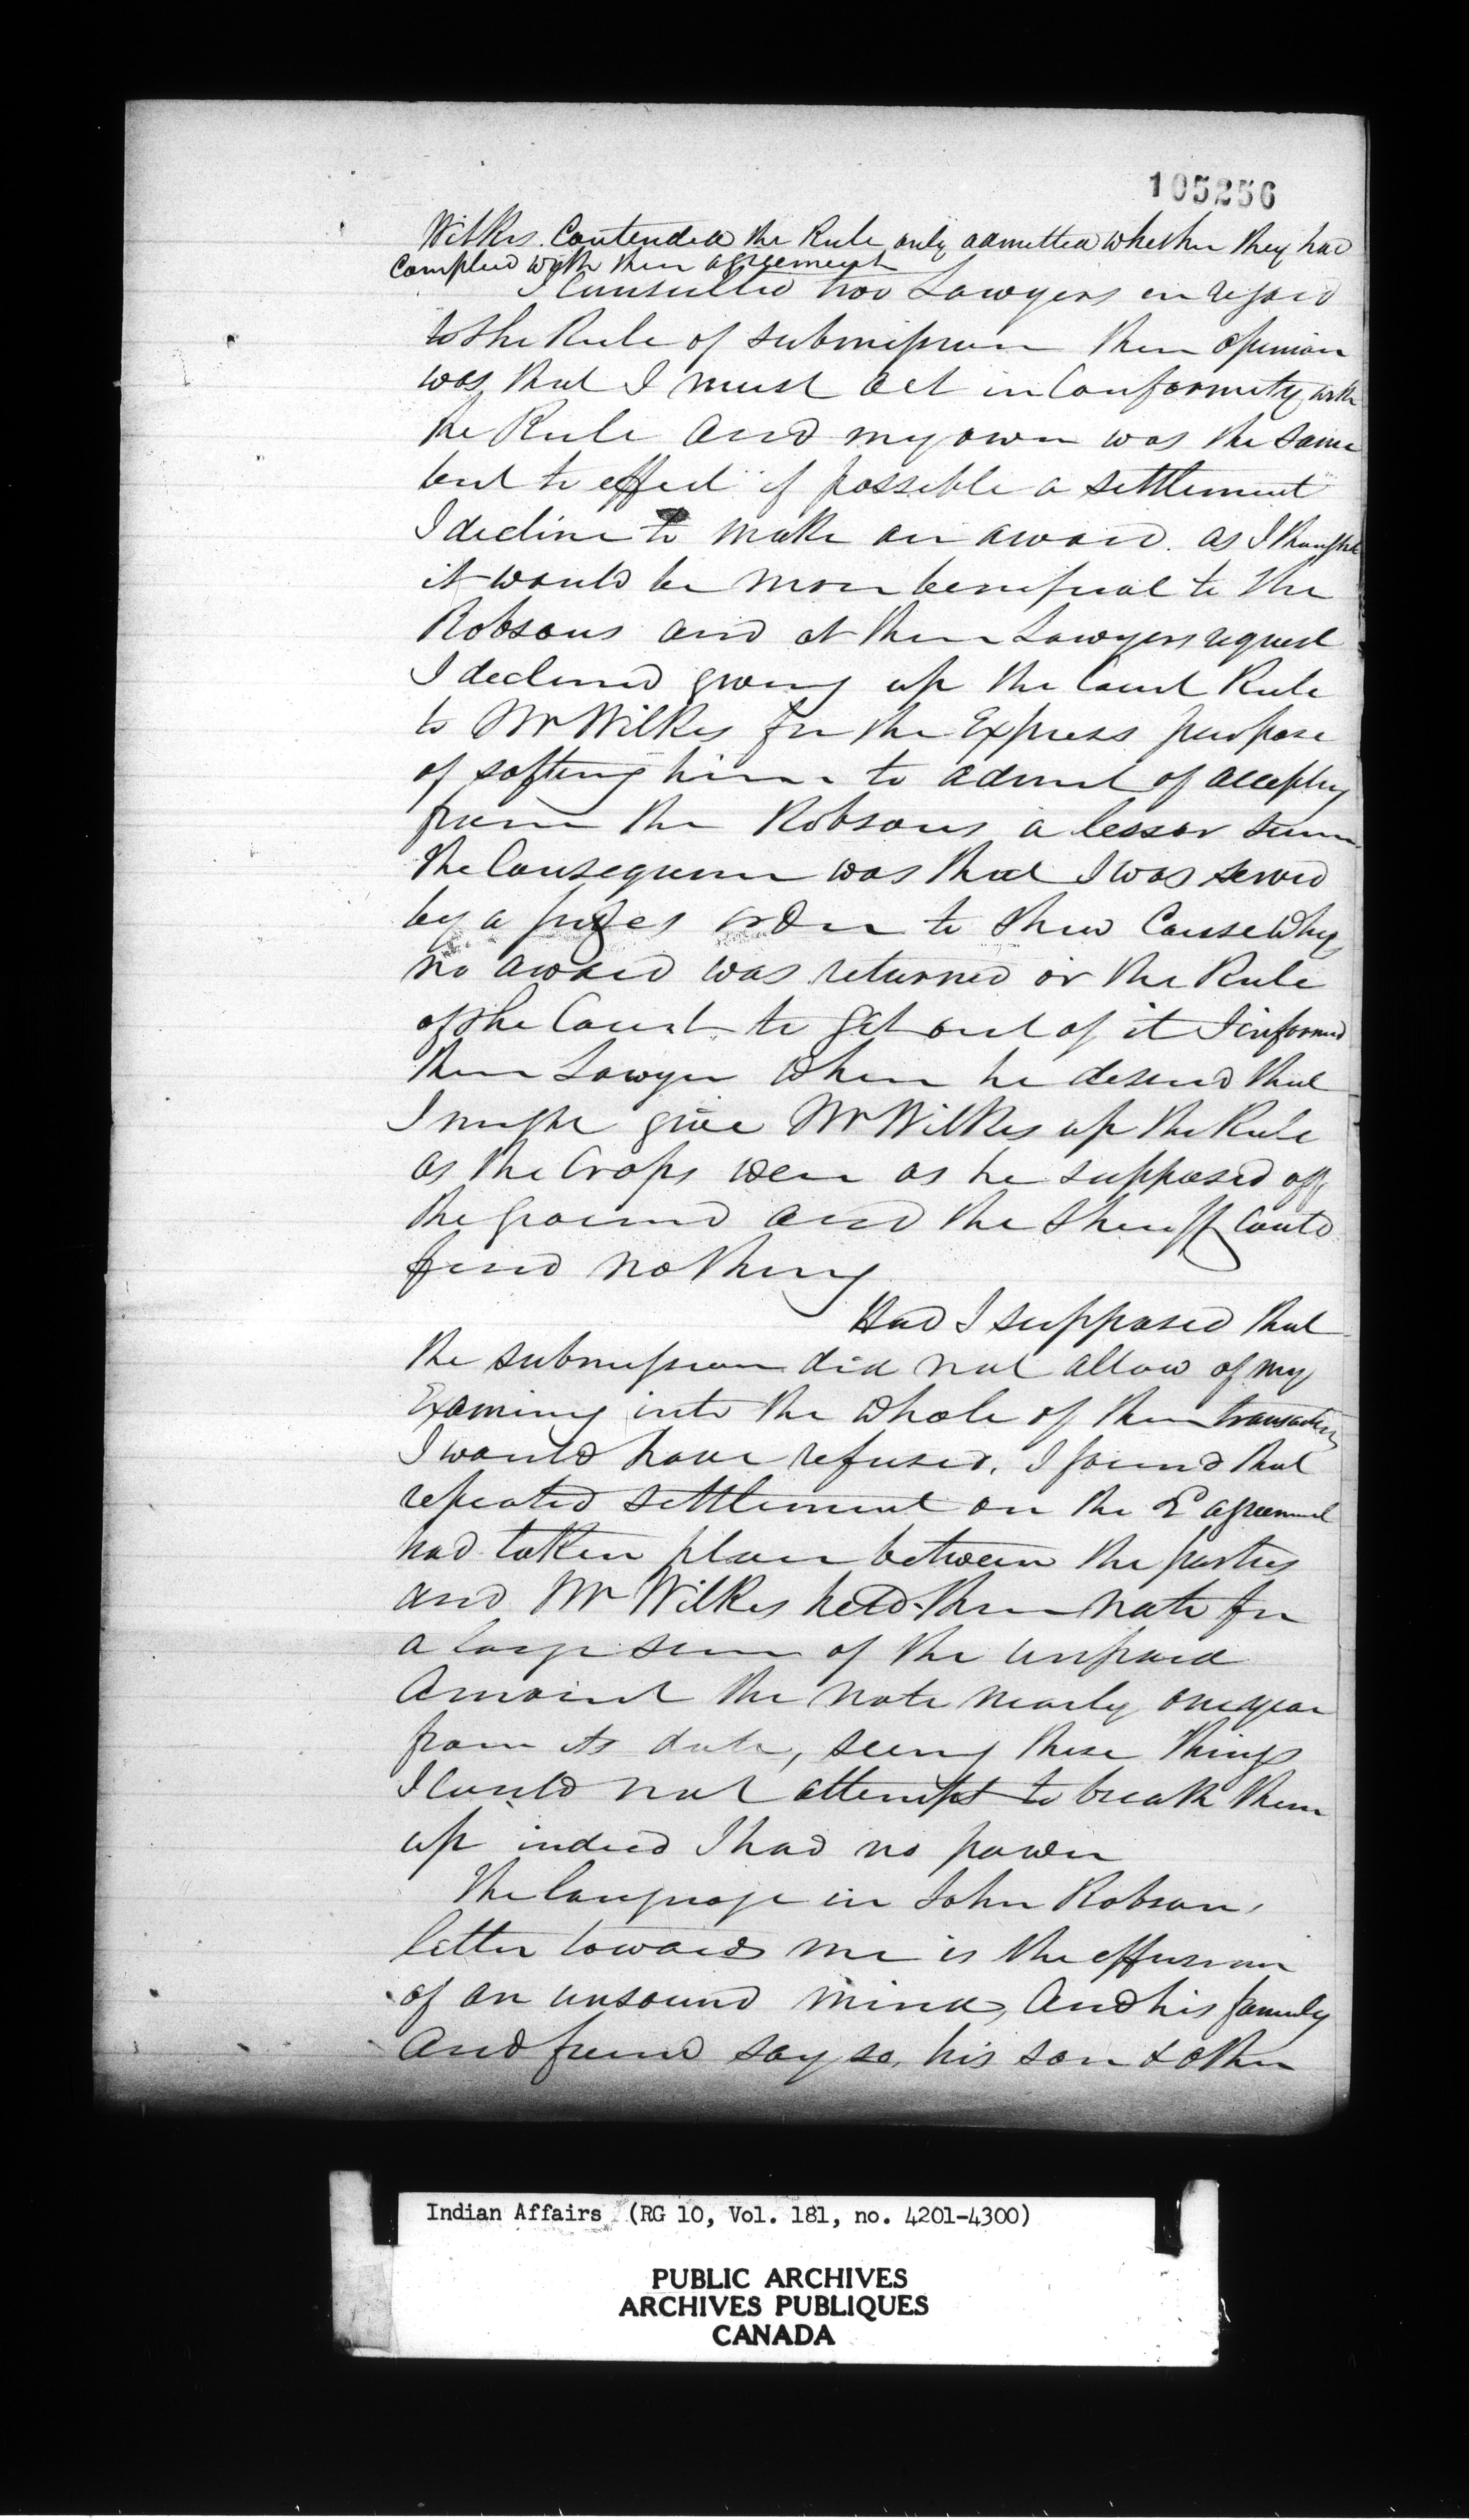 105256
Wilkes Contended the Rule only admitted whether they had
complied with their agreement
I Consulted two Lawyers in regard
to the Rule of submission their opinion
was that I must act in Conformity with
the Rule and my own was the same
but to effect if possible a settlement
I decline to make an award. as I thought
it would be more beneficial to the
Robsons and at their Lawyers request
I declined giving up the Court Rule
to Mr Wilkes for the Express purpose
of softing him to admit of accepting
from the Robsons a lesser sum
the Consequence was that I was served
by a judges order to shew Cause Why
no award was returned or the Rule
of the Court to get out of it I informed
their Lawyer when he desired that
I might give Mr Wilkes up the Rule
as the Crops were as he supposed off
the ground and the Sheriff Could
find nothing
Had I supposed that
the submission did not allow of my
Examing into the whole of their transactions
I would have refused. I found that
repeated settlement on the agreement
had taken place between the parties
and Mr Wilkes held their note for
a large sum of the unpaid
Amount the note nearly one year
from its date, seeing these things
I Could not attempt to break them
up indeed I had no power
The language in John Robsons
letter towards me is the effusion
of an unsound mind, And his family
And friend say so, his son & other
Indian Affairs (RG 10, Vol. 181, no. 4201-4300)
PUBLIC ARCHIVES
ARCHIVES PUBLIQUES
CANADA